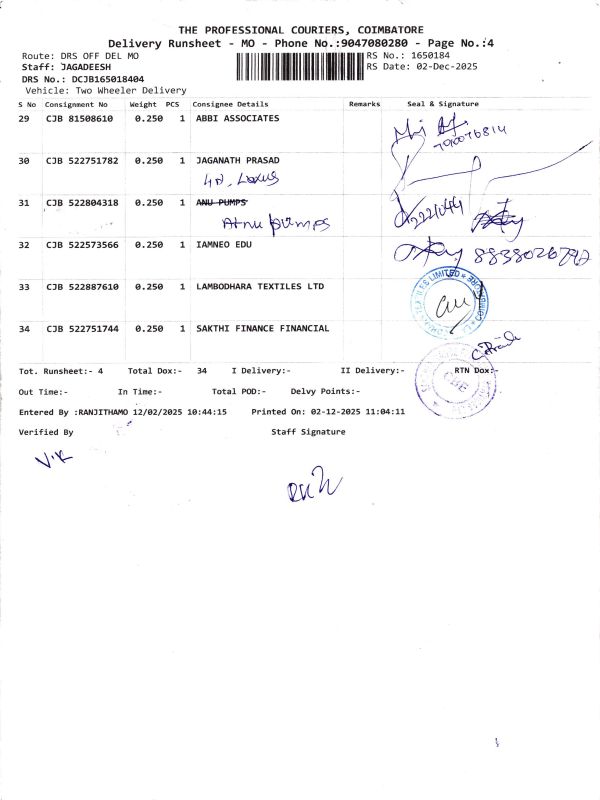 THE PROFESSIONAL COURIERS, COIMBATORE
Delivery Runsheet - MO - Phone No.:9047080280 - Page No.:4
Route: DRS OFF DEL MO
RS No.: 1650184
Staff: JAGADEESH
RS Date: 02-Dec-2025
DRS No.: DCJB165018404
Vehicle: Two Wheeler Delivery
S No Consignment No Weight PCS Consignee Details Remarks Seal & Signature
29 CJB 81508610 0.250 1 ABBI ASSOCIATES
30 CJB 522751782 0.250 1 JAGANATH PRASAD
31 CJB 522804318 0.250 1 ANU PUMPS
pumps
32 CJB 522573566 0.250 1 IAMNEO EDU
33 CJB 522887610 0.250 1 LAMBODHARA TEXTILES LTD
34 CJB 522751744 0.250 1 SAKTHI FINANCE FINANCIAL
Tot. Runsheet:- 4 Total Dox:- 34 I Delivery:- II Delivery:- RTN Dox:-
Out Time:- In Time:- Total POD:- Delvy Points:-
Entered By :RANJITHAMO 12/02/2025 10:44:15 Printed On: 02-12-2025 11:04:11
Verified By Staff Signature